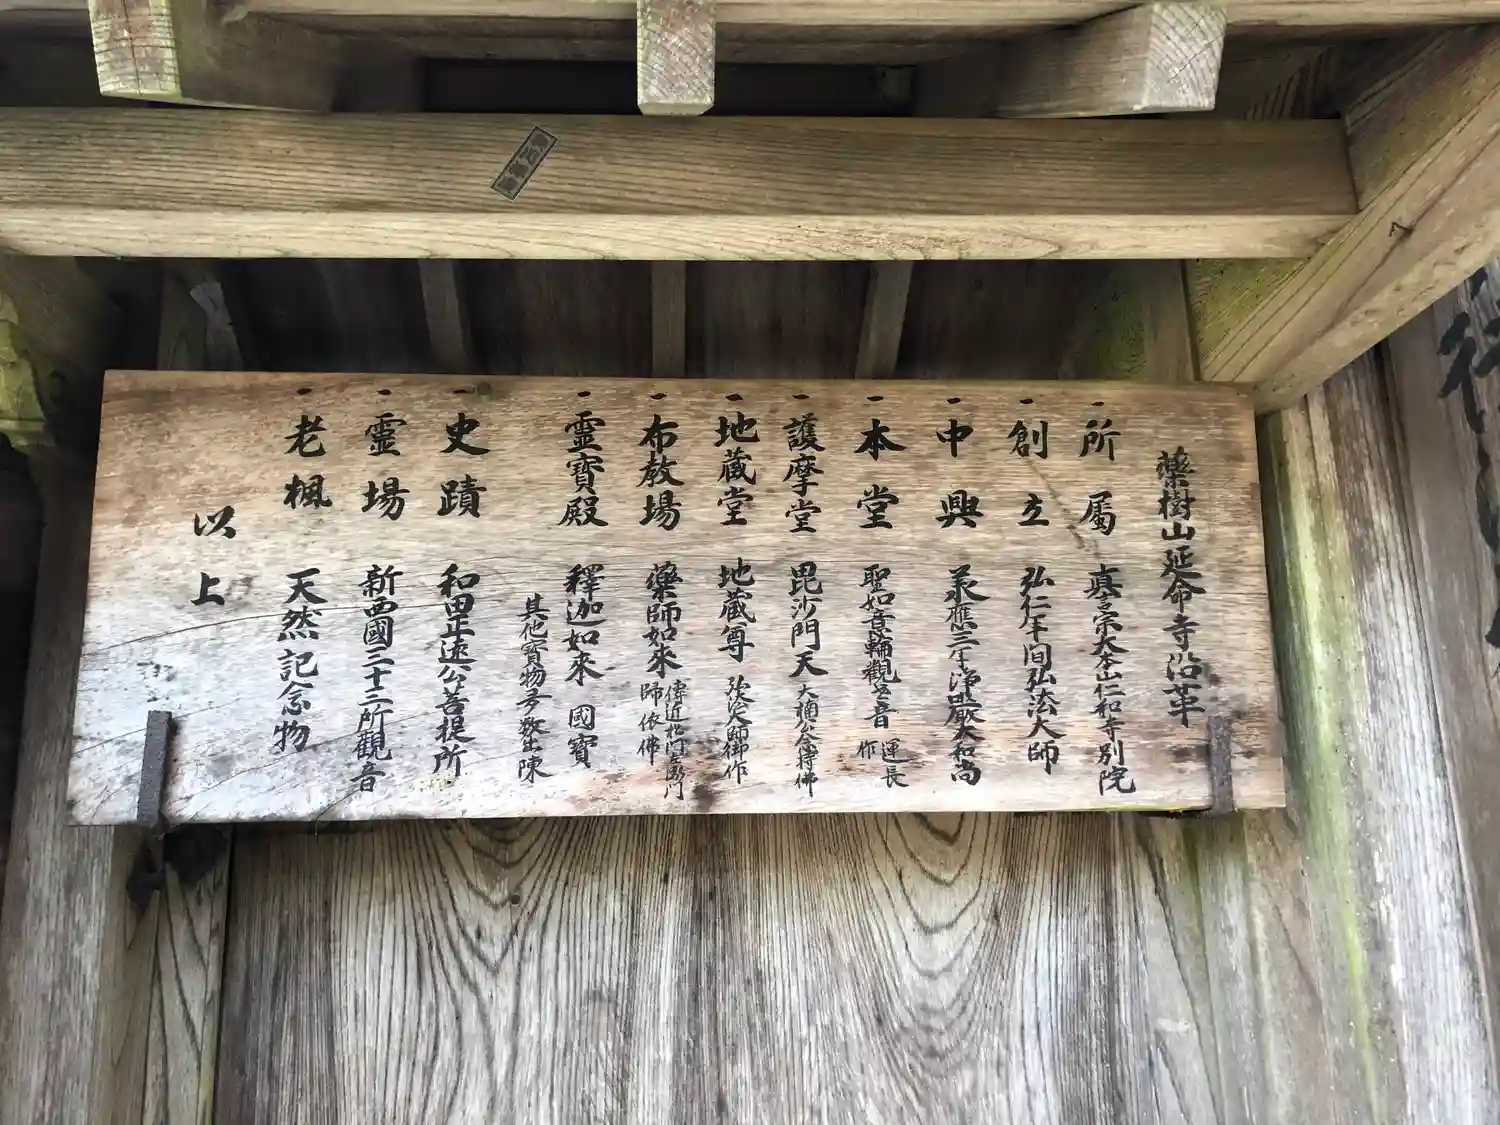 藥樹山延命寺沿革
一 所属 真言宗大本山仁和寺別院
一 創立 弘仁年間弘法大師
一 中興 承應三年浄嚴大和尚
一 本堂 聖如意輪觀世音 運長作
一 護摩堂 毘沙門天 大楠公念持佛
一 地蔵堂 地蔵尊 弘法大師御作
一 布教場 藥師如来 傳近松門左衛門歸依佛
一 靈寶殿 釋迦如來 國寶
其他寶物多数出陳
一 史蹟 和田正遠公菩提所
一 霊場 新西國三十三所觀音
一 老楓 天然記念物
以上